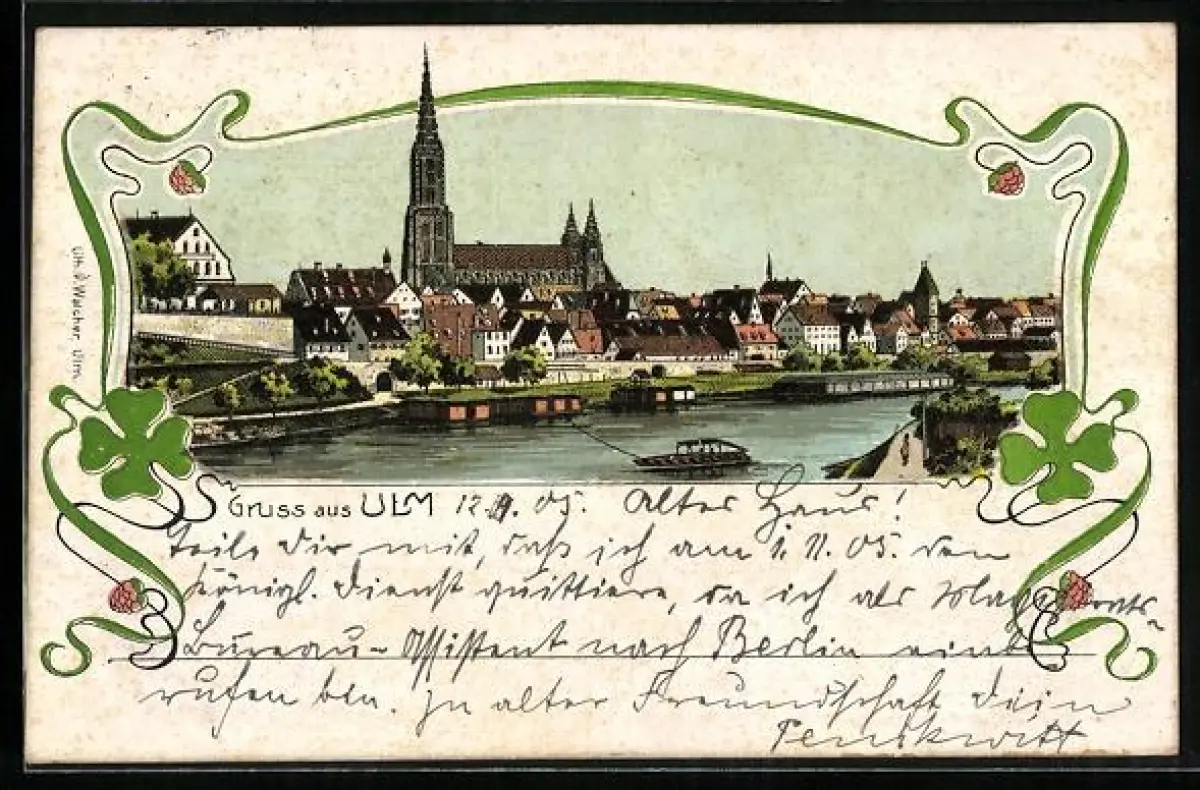 Lith. J. Walcher, Ulm.
Gruss aus ULM 12.9.05. Alter Haus!
teile Dir mit, daß ich am 1.11.05. den
Königl. Dienst quittiere, da ich als Magistrats-
Bureau-Assistent nach Berlin einbe-
rufen bin. In alter Freundschaft Dein